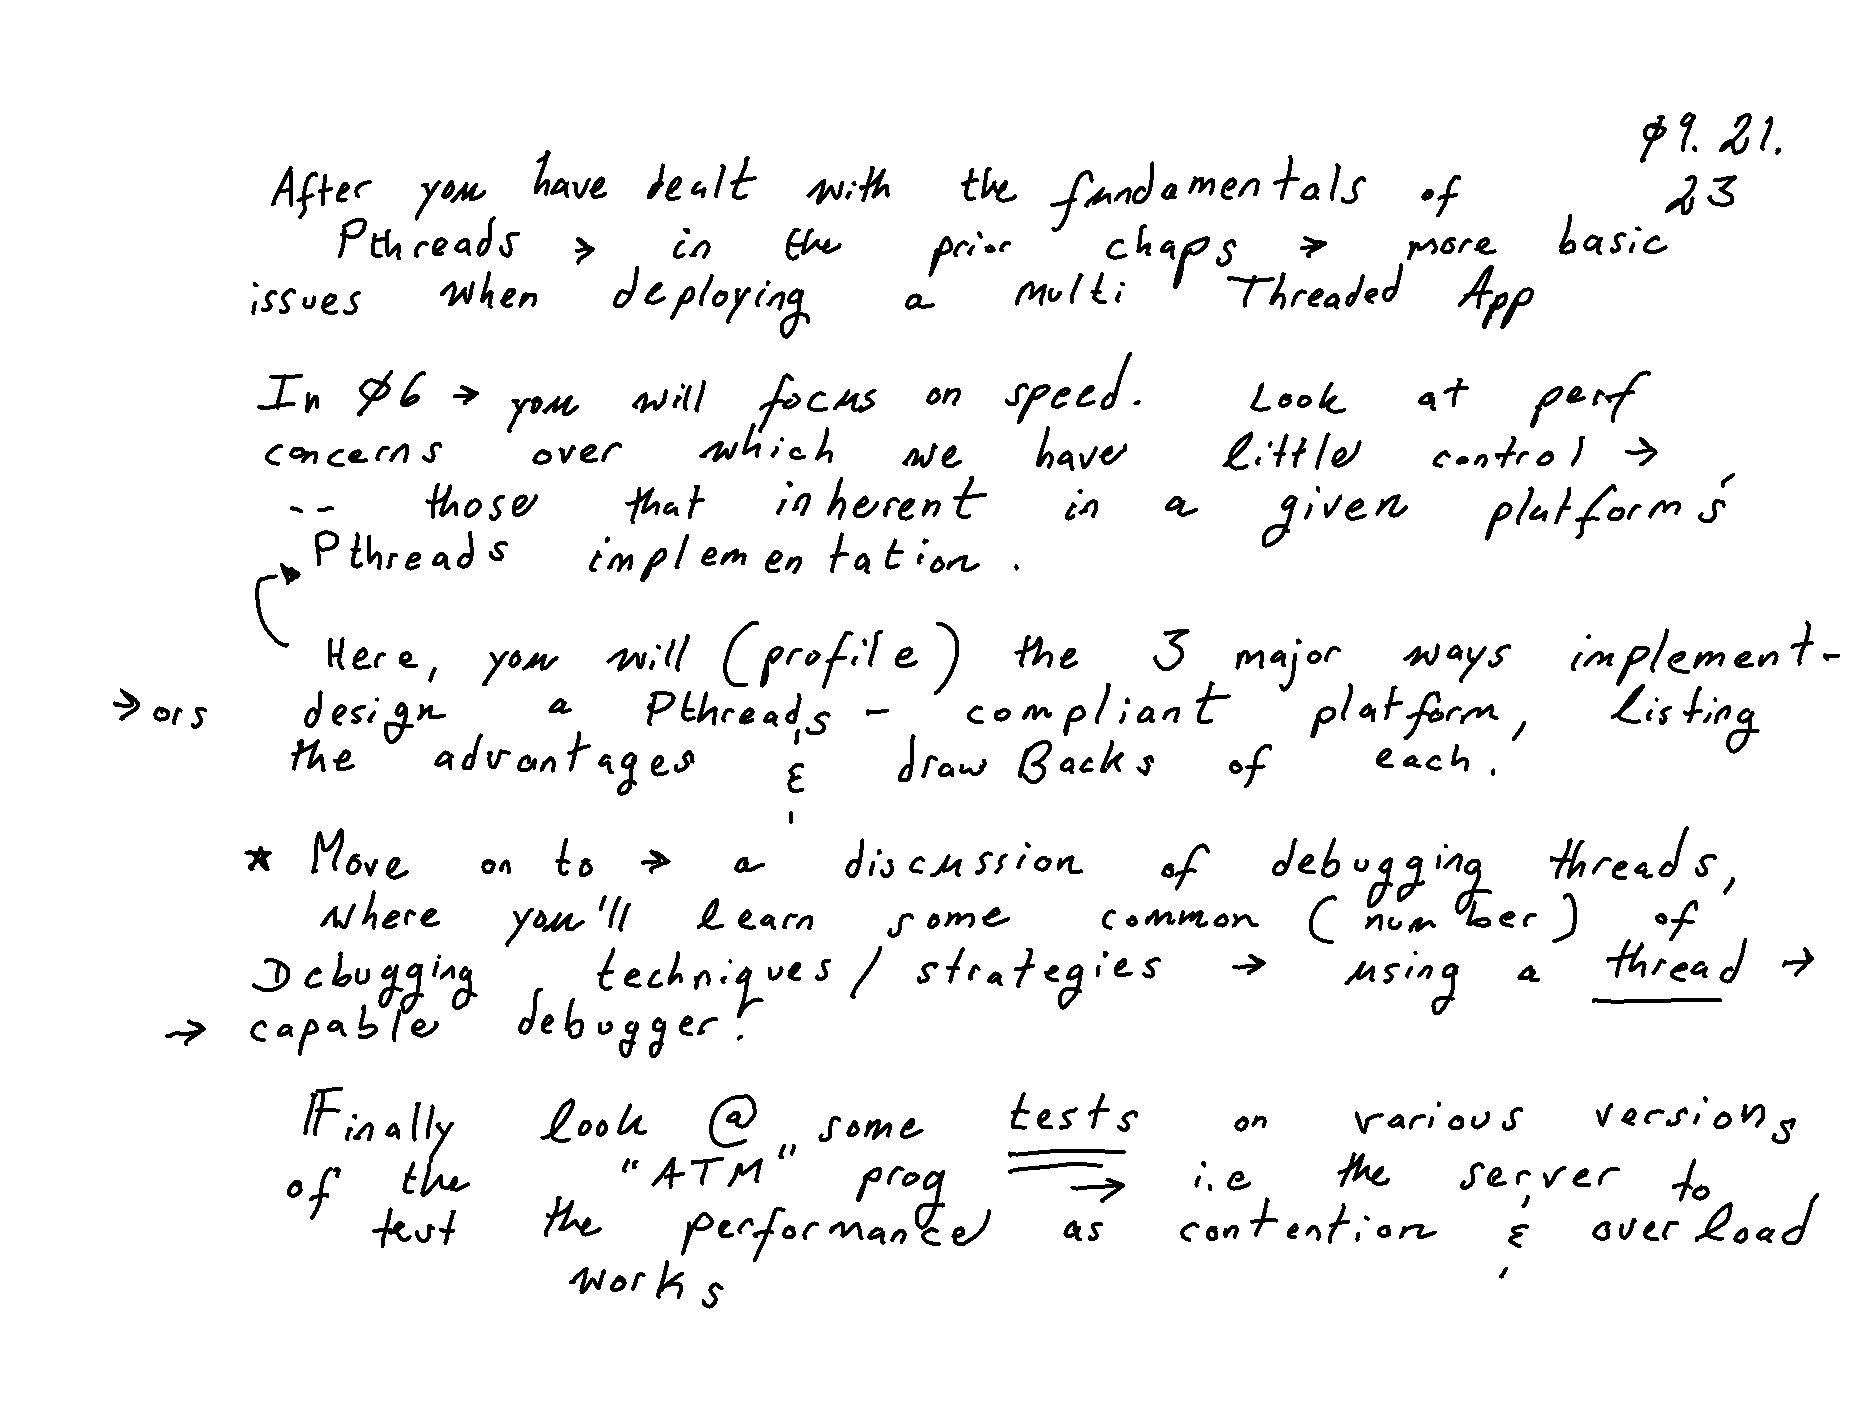 ø9. 21.
23
After you have dealt with the fundamentals of
Pthreads → in the prior chaps → more basic
issues when deploying a multi Threaded App
In Ø6 → you will focus on speed. Look at perf
concerns over which we have little control →
-- those that inherent in a given platform's
Pthreads implementation.
Here, you will (profile) the 3 major ways implement-
→ ors design a Pthreads - compliant platform, listing
the advantages & drawBacks of each.
* Move on to → a discussion of debugging threads,
where you'll learn some common (number) of
Debugging techniques / strategies → using a thread →
→ capable debugger.
Finally look @ some tests on various versions
of the "ATM" prog → i.e the server to
test the performance as contention & overload
works